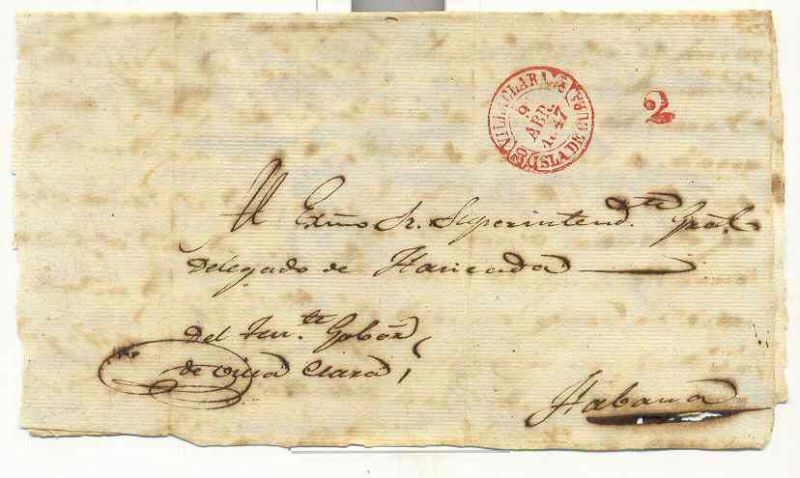 VILLA CLARA
9
ABR.
1847
ISLA DE CUBA
2
Al Exmo Sr. Superintend.te Gral.
Delegado de Hacienda
Del Ten.te Gobor.
de Villa Clara
Habana